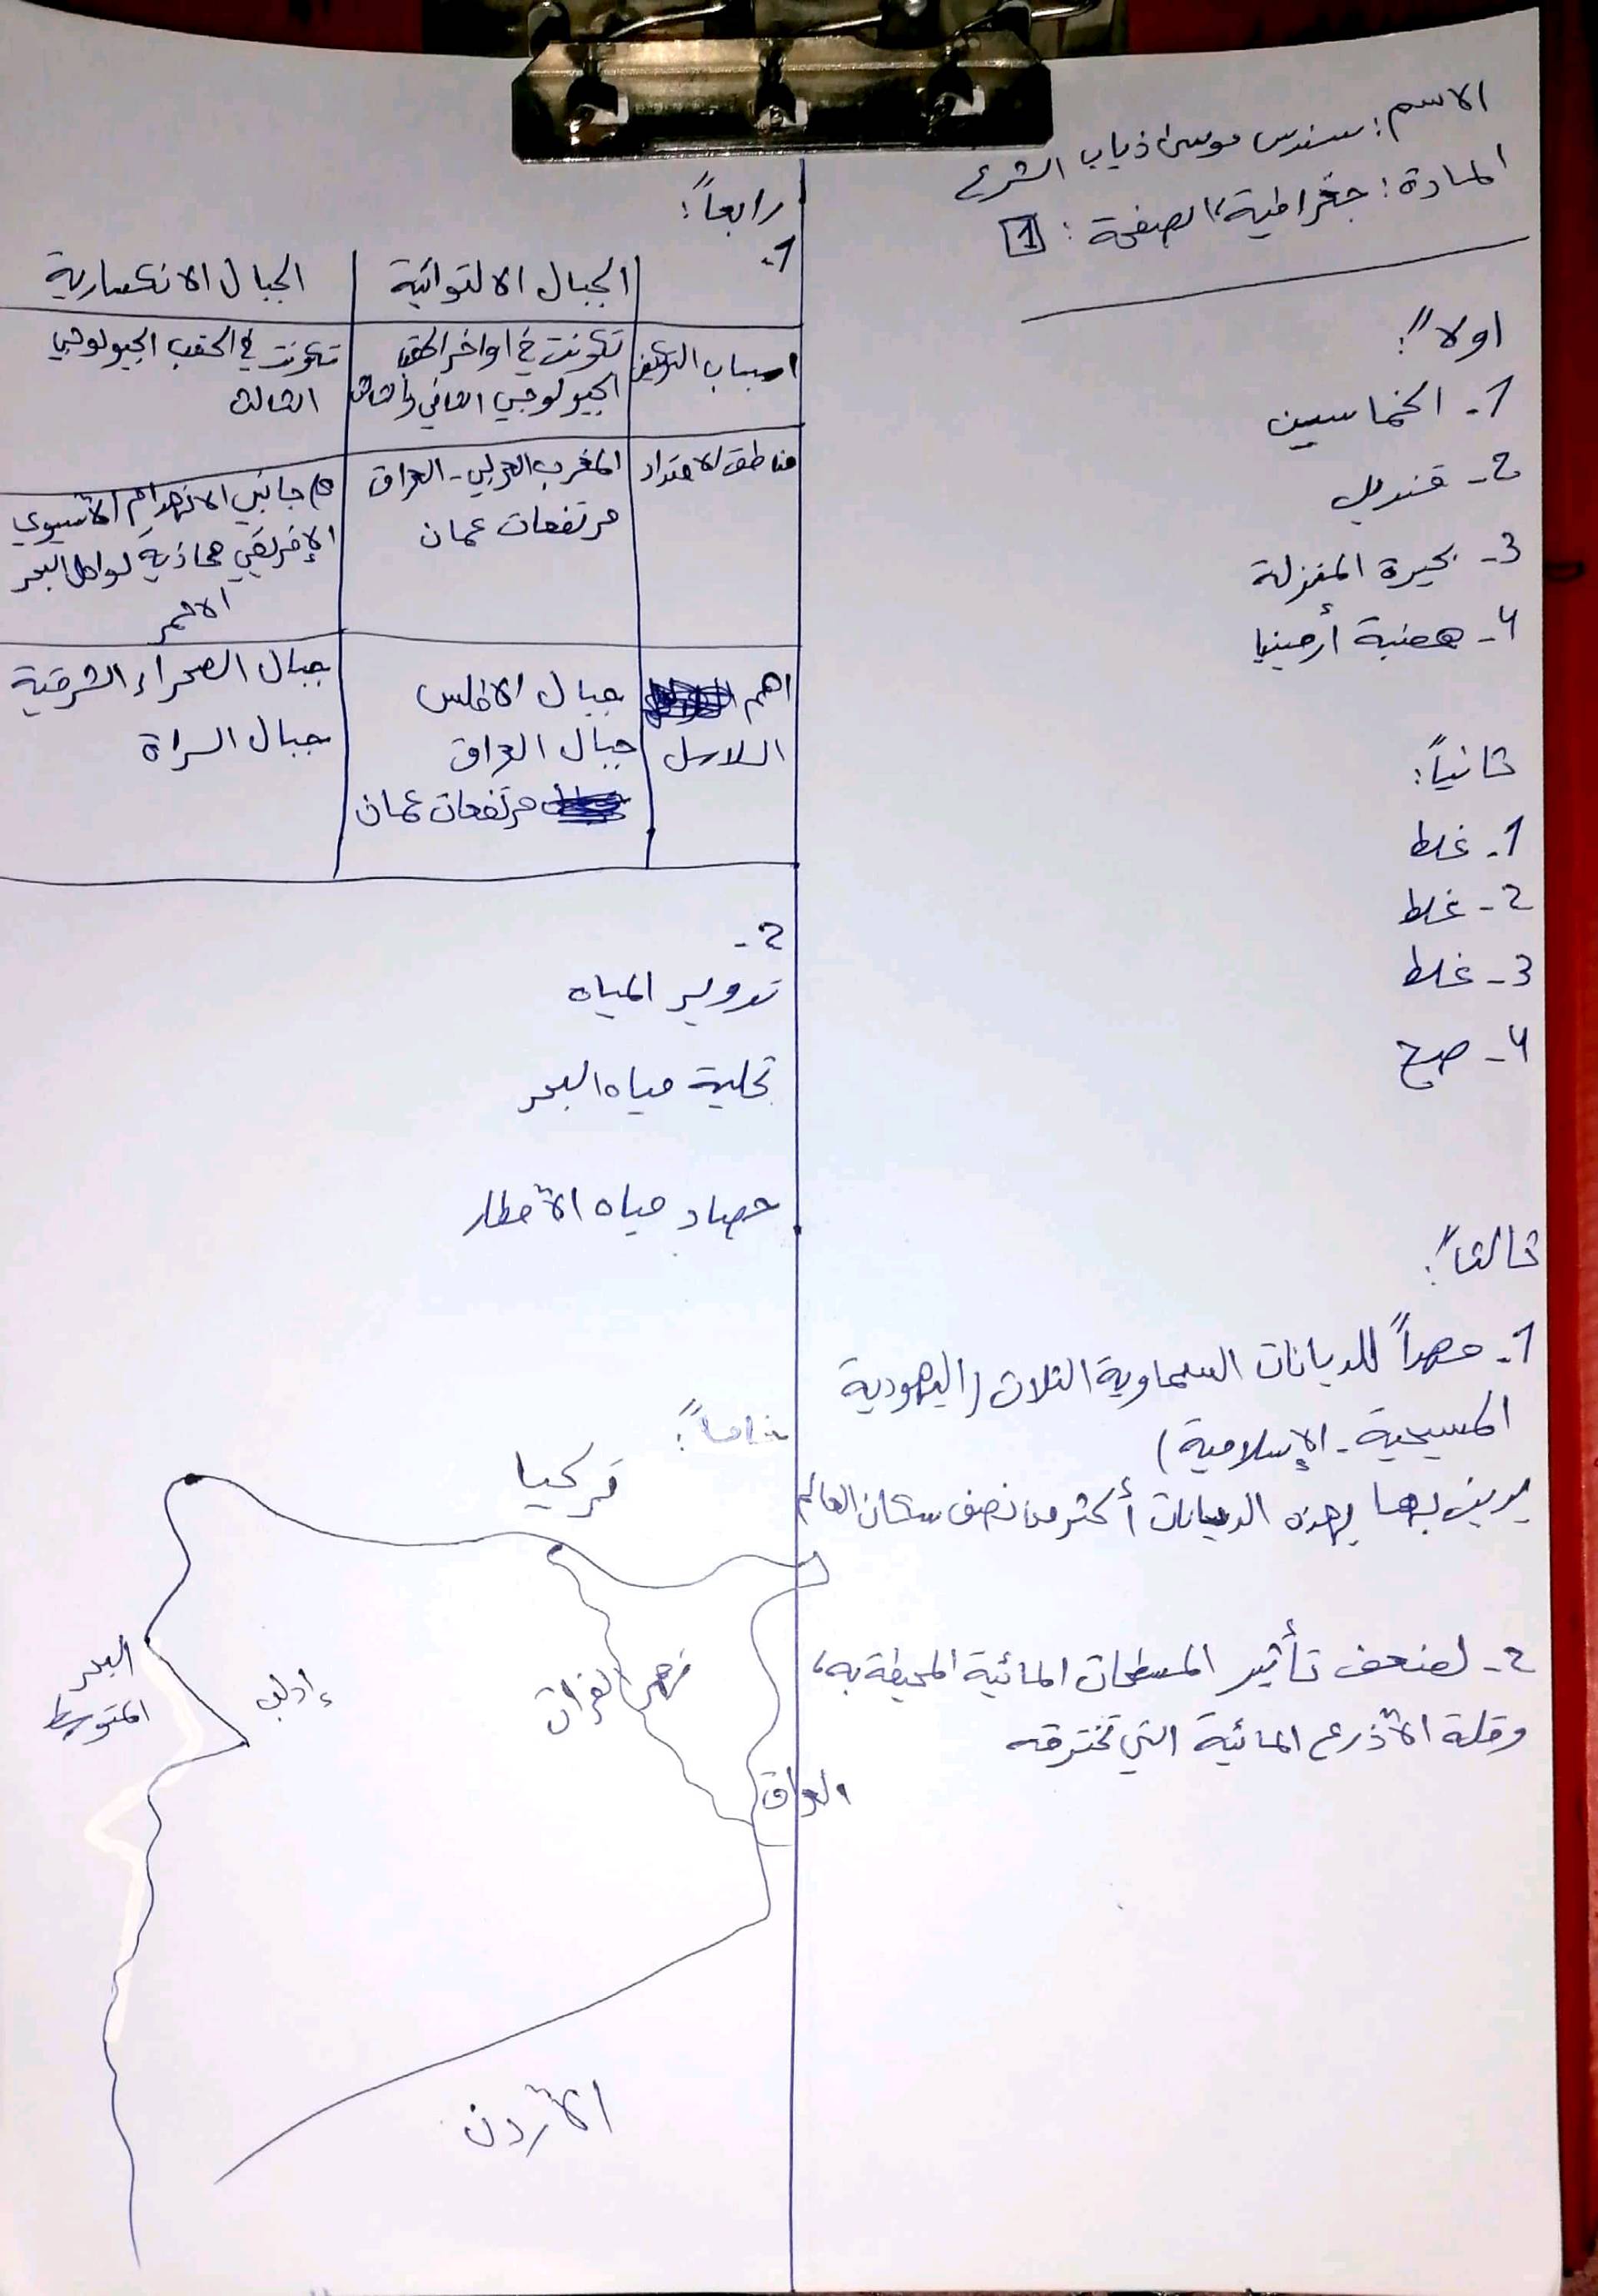 الاسم: سندس موسى ذياب الشرع
المادة: جغرافية، الصفحة: 1
اولاً:
1- الخماسين
2- قنديل
3- بحيرة المنزلة
4- هضبة أرمينيا
ثانياً:
1- غلط
2- غلط
3- غلط
4- صح
ثالثاً:
1- مهداً للديانات السماوية الثلاث (اليهودية
المسيحية - الإسلامية)
يدين بها بهذه الديانات أكثر من نصف سكان العالم
2- لضعف تأثير المسطحات المائية المحيطة به،
وقلة الأذرع المائية التي تخترقه
رابعاً:
1-
الجبال الالتوائية
الجبال الانكسارية
اسباب
تكونت في اواخر الحقب
الجيولوجي الثاني والثالث
تكونت في الحقب الجيولوجي
الثالث
مناطق الامتداد
المغرب العربي - العراق
مرتفعات عمان
جانبي الانهدام الآسيوي
الإفريقي محاذية لساحل البحر
الاحمر
اهم
السلاسل
جبال الاطلس
جبال العراق
مرتفعات عمان
جبال الصحراء الشرقية
جبال السراة
2-
تدوير المياه
تحلية مياه البحر
حصاد مياه الأمطار
خامساً:
تركيا
البحر
المتوسط
إدلب
نهر الفرات
العراق
الأردن